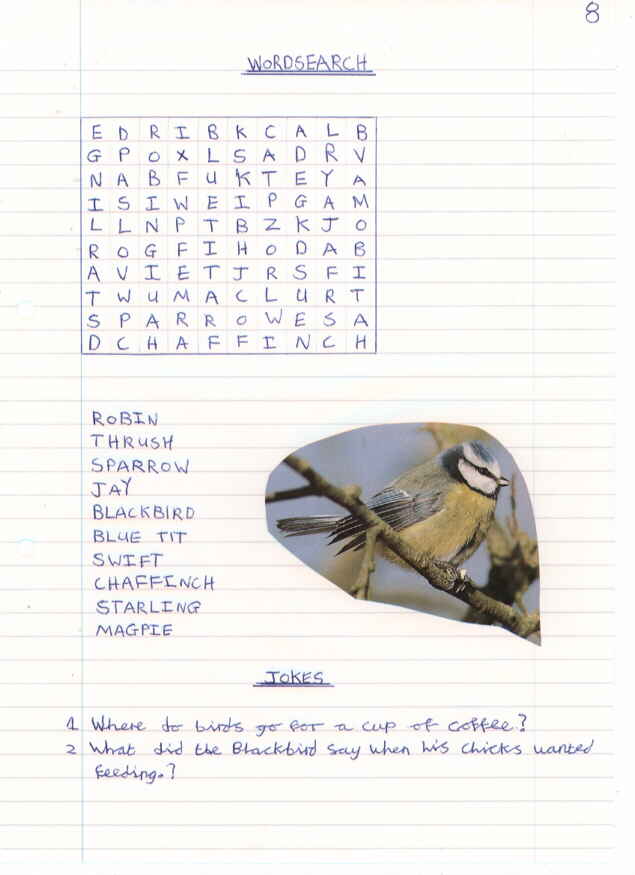 8
WORDSEARCH
E D R I B K C A L B
G P O X L S A D R V
N A B F U K T E Y A
I S I W E I P G A M
L L N P T B Z K J O
R O G F I H O D A B
A V I E T J R S F I
T W U M A C L U R T
S P A R R O W E S A
D C H A F F I N C H
ROBIN
THRUSH
SPARROW
JAY
BLACKBIRD
BLUE TIT
SWIFT
CHAFFINCH
STARLING
MAGPIE
JOKES
1 Where do birds go for a cup of coffee?
2 What did the Blackbird say when his chicks wanted
feeding.?